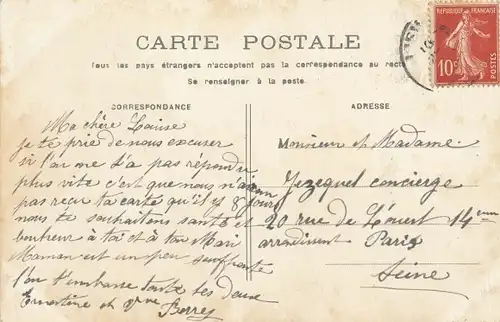 CARTE POSTALE
Tous les pays étrangers n'acceptent pas la correspondance au recto
Se renseigner à la poste.
CORRESPONDANCE
Ma chère Louise
je te prie de nous excuser
si l'on ne t'a pas répondu
plus vite c'est que nous n'avon
pas reçu ta carte qu'il y a 8 jours
nous te souhaitons santé et
bonheur à toi et à ton Mari
Maman est un peu souffrante
l'on t'embrasse toute les deux
Ernestine et Vve Berrez
ADRESSE
Monsieur et Madame
Jezequel concierge
20 rue de l'ouest 14em
arrondiment Paris
Seine
REPUBLIQUE FRANÇAISE
10c
POSTES